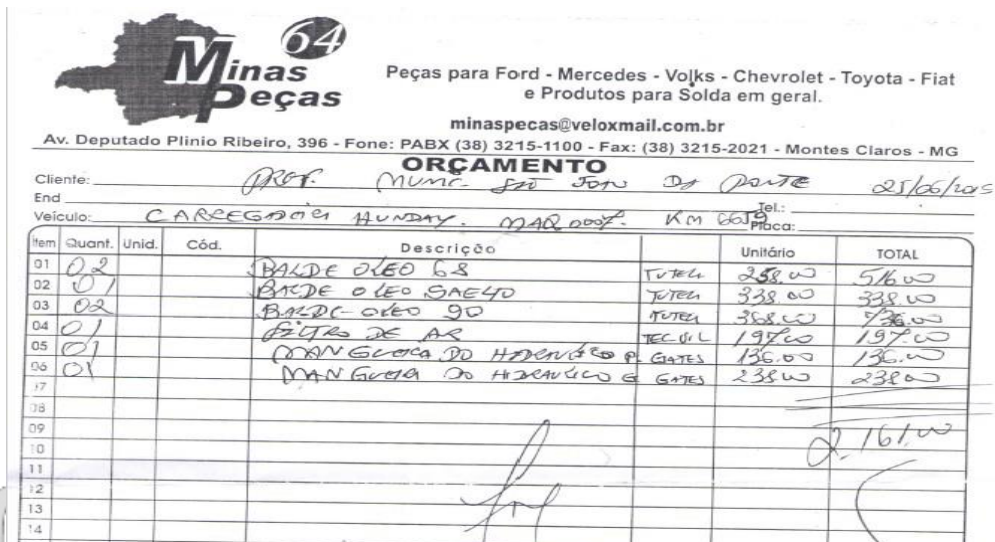 64
Minas
Peças
Peças para Ford - Mercedes - Volks - Chevrolet - Toyota - Fiat
e Produtos para Solda em geral.
minaspecas@veloxmail.com.br
Av. Deputado Plinio Ribeiro, 396 - Fone: PABX (38) 3215-1100 - Fax: (38) 3215-2021 - Montes Claros - MG
ORÇAMENTO
Cliente: PREF. MUNIC. São João Da Ponte 25/06/2015
End Tel.:
Veículo: CARREGADEIRA HUNDAY. MAR 0007. KM 6659 Placa:
Item Quant. Unid. Cód. Descrição Unitário TOTAL
01 02 BALDE OLEO 68 TUTELA 258.00 516.00
02 01 BALDE OLEO SAE40 TUTELA 338.00 338.00
03 02 BALDE OLEO 90 TUTELA 368.00 736.00
04 01 FILTRO DE AR TECFIL 197.00 197.00
05 01 MANGUEIRA DO HIDRAULICO P. GATES 136.00 136.00
06 01 MANGUEIRA DO HIDRAULICO G GATES 238.00 238.00
17
08
09 2.161.00
10
11
12
13
14